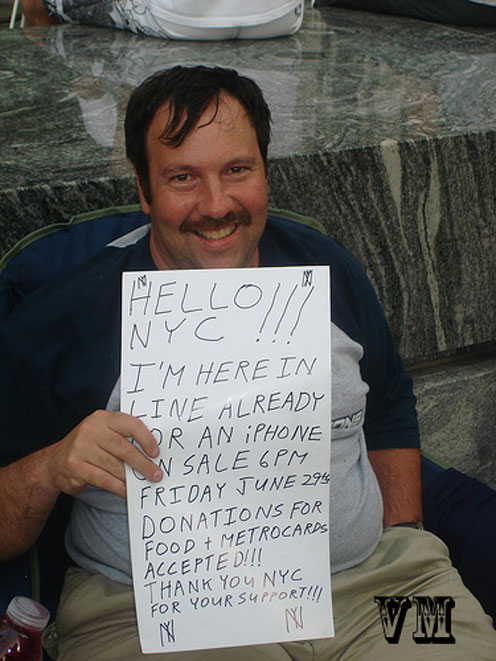 HELLO!!!
NYC !!!
I'M HERE IN
LINE ALREADY
FOR AN iPHONE
ON SALE 6PM
FRIDAY JUNE 29th
DONATIONS FOR
FOOD + METROCARDS
ACCEPTED!!!
THANK YOU NYC
FOR YOUR SUPPORT!!!
NY NY
VM